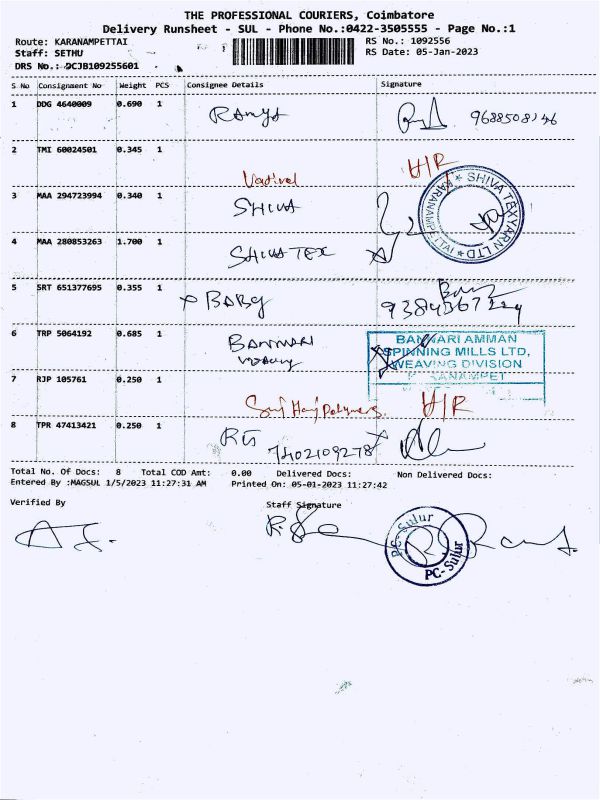 THE PROFESSIONAL COURIERS, Coimbatore
Delivery Runsheet - SUL - Phone No.:0422-3505555 - Page No.:1
Route: KARANAMPETTAI
RS No.: 1092556
Staff: SETHU
RS Date: 05-Jan-2023
DRS No.: DCJB109255601
S No Consignment No Weight PCS Consignee Details Signature
1 DDG 4640009 0.690 1 RAMYA 9688508146
2 TMI 60024501 0.345 1 Vadivel H/R
3 MAA 294723994 0.340 1 SHIVA
SHIVA TEXYARN LTD
KARANAMPETTAI
4 MAA 280853263 1.700 1 SHIVA TEX
5 SRT 651377695 0.355 1 BABY
6 TRP 5064192 0.685 1 BANNARI
BANNARI AMMAN
SPINNING MILLS LTD,
WEAVING DIVISION
7 RJP 105761 0.250 1 Polymers H/R
8 TPR 47413421 0.250 1
7402109278
Total No. Of Docs: 8 Total COD Amt: 0.00 Delivered Docs: Non Delivered Docs:
Entered By :MAGSUL 1/5/2023 11:27:31 AM Printed On: 05-01-2023 11:27:42
Verified By
Staff Signature
PC-Sulur
PC-Sulur